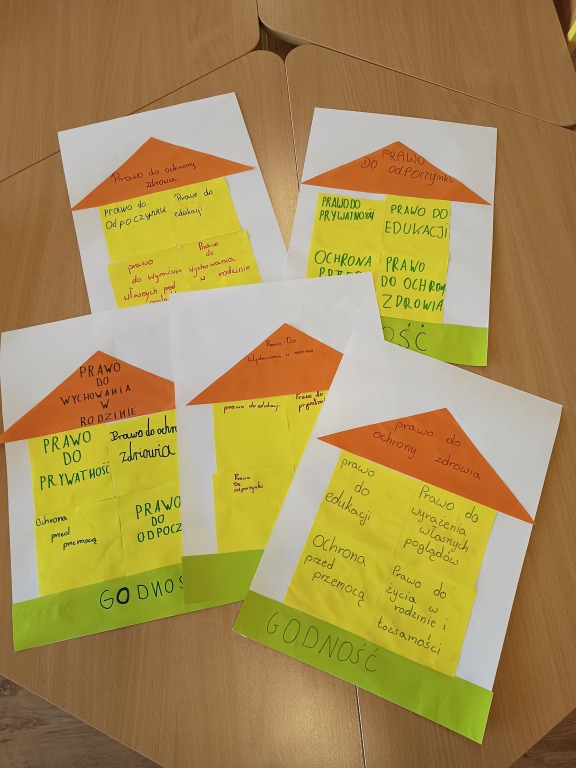 Prawo do ochrony
zdrowia
Prawo do
odpoczynku
Prawo do
edukacji
prawo
do wyrażania
własnych
Prawo
do
wychowania
w rodzinie
PRAWO
DO ODPOCZYNKU
PRAWO DO
PRYWATNOŚĆ
PRAWO DO
EDUKACJI
OCHRONA
PRAWO
DO OCHRON
ZDROWIA
OŚĆ
PRAWO
DO
WYCHOWANIA
W
RODZINIE
PRAWO
DO
PRYWATNOŚĆ
Prawo do ochr
zdrowia
Ochrona
przed
przemocą
PRAWO
DO
ODPOCZ
GODNOŚ
Prawo Do
Wychowania w rodzinie
prawo do edukacji
Prawo do
Prawo
Do
odpoczynku
prawo do
ochrony zdrowia
prawo
do
edukacji
Prawo do
wyrażenia
własnych
poglądów
Ochrona
przed
przemocą
Prawo do
życia w
rodzinie i
tożsamości
GODNOŚĆ